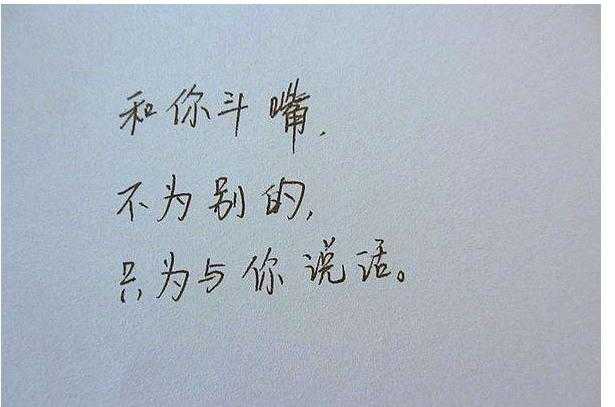 和你斗嘴,
不为别的,
只为与你说话。